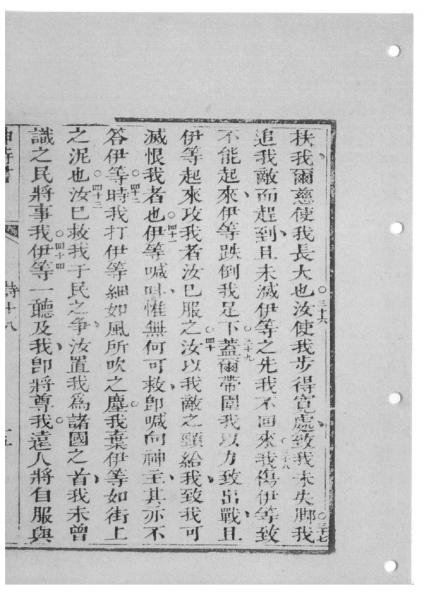 扶我爾慈使我長大也○三十六汝使我步得寬處致我未失脚○三十七我
追我敵而趕到且未滅伊等之先我不回來○三十八我傷伊等致
不能起來伊等跌倒我足下○三十九蓋爾帶圍我以力致出戰且
伊等起來攻我者汝已服之○四十汝以我敵之頸給我致我可
滅恨我者也○四十一伊等喊叫惟無何可救卽喊向神主其亦不
答伊等○四十二時我打伊等細如風所吹之塵我棄伊等如街上
之泥也○四十三汝已救我于民之爭汝置我爲諸國之首我未曾
識之民將事我○四十四伊等一聽及我卽將尊我遠人將自服與
詩十八